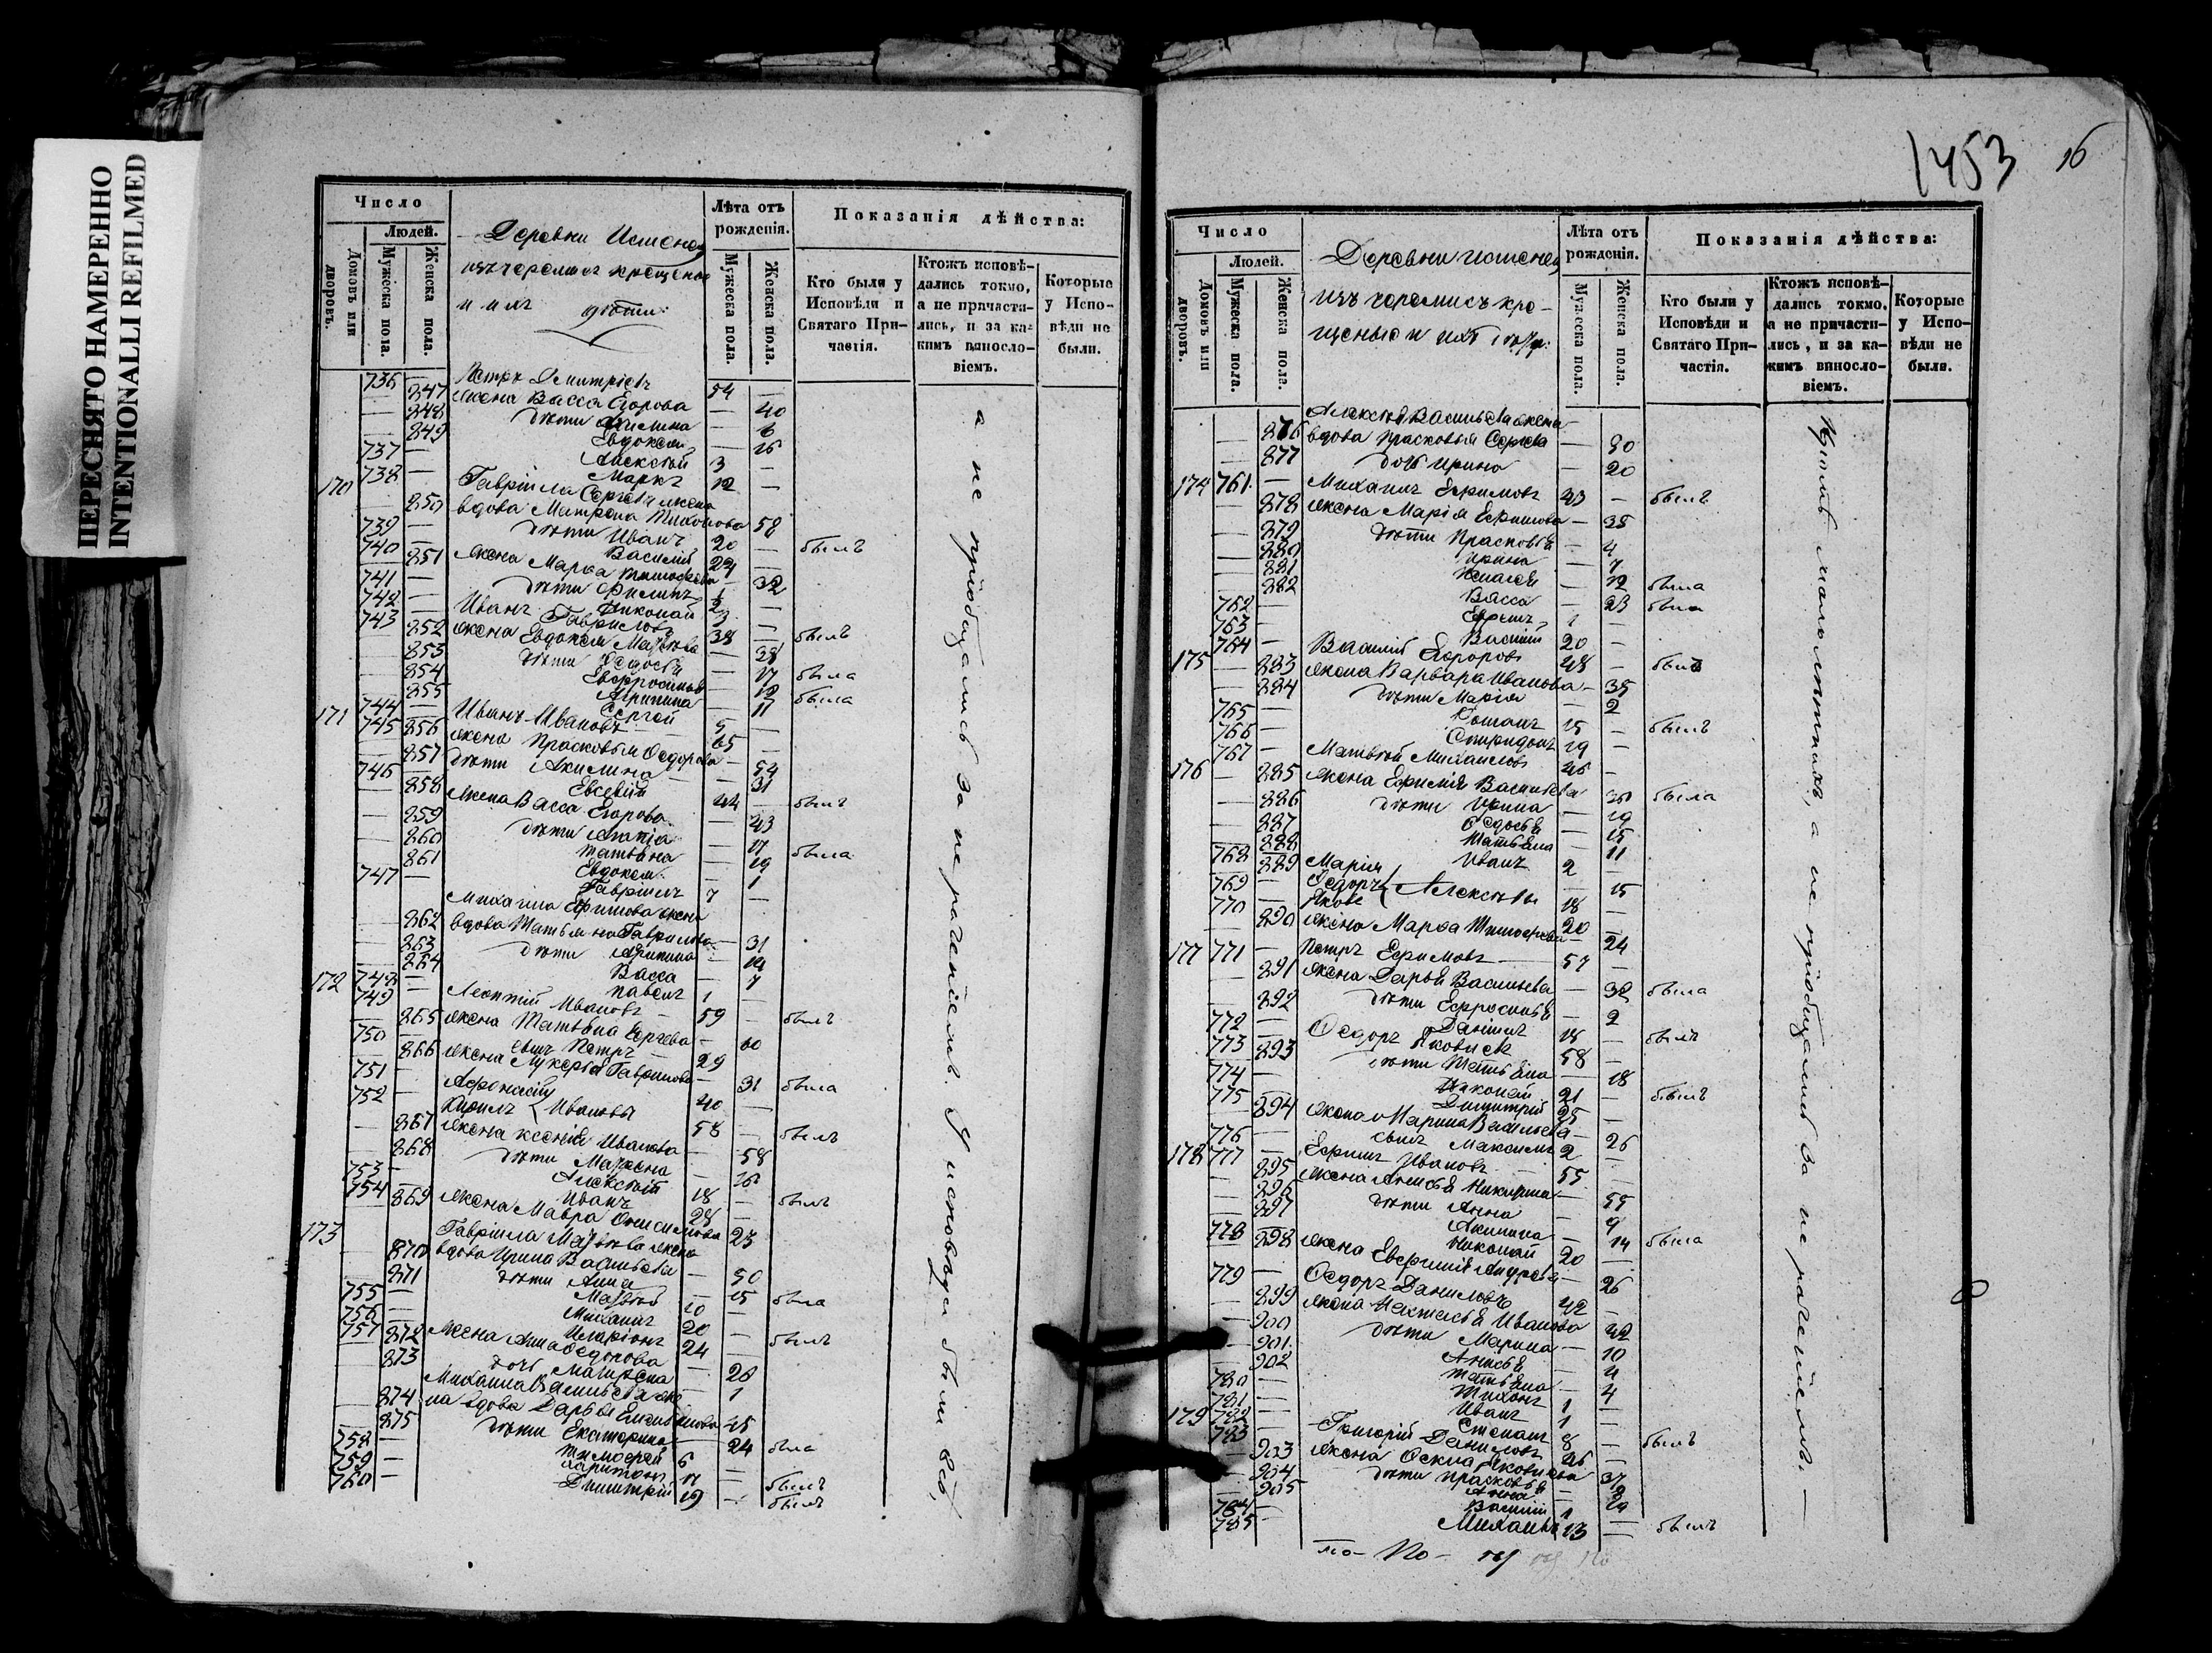 ПЕРЕСНЯТО НАМЕРЕННО
INTENTIONALLI REFILMED
Число
Людей.
Домовъ или дворовъ.
Мужеска пола.
Женска пола.
Деревни
крещеные
и ихъ дѣти:
Лѣта отъ рожденія.
Мужеска пола.
Женска пола.
Показанія дѣйства:
Кто были у Исповѣди и Святаго Причастія.
Ктожъ исповѣдались токмо, а не причастились, и за какимъ винословіемъ.
Которые у Исповѣди не были.
736 — Петръ Дмитріевъ 54 —
— 847 жена Васса Егорова — 40
— 848 дѣти Акилина — 6
— 849 Евдокея — 16
737 — Алексѣй 3 —
738 — Маркъ 12 —
170 Гавріила Сергѣева жена
— 850 вдова Матрона Тихонова 58
739 — дѣти Иванъ 20 — былъ
740 — Василій 24
— 851 жена Марѳа Тимоѳеева — 32
741 — дѣти Филипъ 1 —
742 — Николай 3 —
743 — Иванъ Гавриловъ 38 — былъ
— 852 жена Евдокея Матвѣева — 38
— 853 дѣти Ѳедосья — 17 была
— 854 Евфросинья — 12 была
— 855 Агрипина — 11
744 — Сергей 5 —
171 745 — Иванъ Ивановъ 65 —
— 856 жена Прасковья Ѳедорова — 54
— 857 дѣти Акилина — 31
746 — Евсевій 44 — былъ
— 858 жена Васса Егорова — 43
— 859 дѣти Агапія — 17 была
— 860 Татьяна — 19
— 861 Евдокея — 1
747 — Гавріилъ 7 —
Михаила Ефимова жена
— 862 вдова Татьяна Гаврилова — 31
— 863 дѣти Агрипина — 14
— 864 Васса — 7
172 748 — Павелъ 1 —
749 — Леонтій Ивановъ 59 — былъ
— 865 жена Татьяна Сергѣева — 60
750 — сынъ Петръ 29
— 866 жена Лукерія Гаврилова — 31 была
751 — Афонасій
752 — Кирилъ } Ивановы 40 —
58 — былъ
— 867 жена Ксенія Иванова — 58
— 868 дѣти Матрена — 16
753 — Алексѣй 18 — былъ
754 — Иванъ 28
— 869 жена Мавра Онисимова 23
173 Гавріила Матвѣева жена
— 870 вдова Ирина Васильева — 50
— 871 дѣти Анна — 15 была
755 — Матвѣй 10 —
756 — Михаилъ 20 — былъ
757 — Иларіонъ 24 —
— 872 жена Анна Ѳедорова — 26
— 873 дочь Матрена — 1
Михаила Васильева же-
— 874 на вдова Дарья 45
— 875 дѣти Екатерина — 24 была
758 — Тимофей 6 —
759 — Харитонъ 17 — былъ
760 — Димитрій 19 — былъ
а не пріобщались за не раченіемъ. У исповѣди были всѣ,
1453
16
Число
Людей.
Домовъ или дворовъ.
Мужеска пола.
Женска пола.
Деревни
изъ черемисъ кре-
щеные и ихъ дѣти:
Лѣта отъ рожденія.
Мужеска пола.
Женска пола.
Показанія дѣйства:
Кто были у Исповѣди и Святаго Причастія.
Ктожъ исповѣдались токмо, а не причастились, и за какимъ винословіемъ.
Которые у Исповѣди не были.
Алексѣя Васильева жена
— 876 вдова Прасковья Сергѣева — 50
— 877 дочь Ирина — 20
174 761 — Михаилъ Ефимовъ 43 — былъ
— 878 жена Марія Ефимова — 38
— 879 дѣти Прасковья — 4
— 880 Ирина — 7
— 881 — 12 была
— 882 Васса — 23 была
762 — Ефимъ 1 —
763 — Василій 20 —
175 764 — Василій Егоровъ 48 — былъ
— 883 жена Варвара Иванова — 35
— 884 дѣти Марія — 2
765 — Романъ 15 — былъ
766 — Спиридонъ 19 —
176 767 — Матвѣй Михаиловъ 46 —
— 885 жена Ефимія Васильева — была
— 886 дѣти Ирина — 19
— 887 Ѳедосья — 15
— 888 Татьяна — 11
768 — Иванъ 2 —
— 889 Марія — 15
769 — Ѳедоръ } Алексѣевы 18 —
770 — Яковъ 20 —
— 890 жена Марѳа Тимоѳеева — 24
177 771 — Петръ Ефимовъ 57 —
— 891 жена Дарья Васильева — 32 была
— 892 дѣти Ефросинья — 2
772 — Даніилъ 15 — былъ
773 — Ѳедоръ Яковлевъ 58 —
— 893 дѣти Татьяна — 18
774 — Николай 21 — былъ
775 — Димитрій 25 —
— 894 жена Марина Васильева — 26
776 — сынъ Максимъ 2 —
178 777 — Ефимъ Ивановъ 55 —
— 895 жена Анисья Никитина — 55
— 896 дѣти Анна — 9
— 897 Акилина — 14 была
778 — Николай 20 —
— 898 жена Евфимія Андреева — 26
779 — Ѳедоръ Даниловъ 42 —
— 899 жена Настасья Иванова 42
— 900 дѣти Марина — 10
— 901 Анисья — 4
— 902 Татьяна — 4
780 — Тихонъ 1 —
781 — Иванъ 1 —
782 — Степанъ 8 — былъ
179 783 — Григорій Даниловъ 46 —
— 903 жена Яковлева 37
— 904 дѣти Прасковья
— 905 Анна
784 — Василій 1 —
785 — Михаилъ 13 — былъ
кромѣ малолѣтнихъ, а не пріобщались за не раченіемъ. —